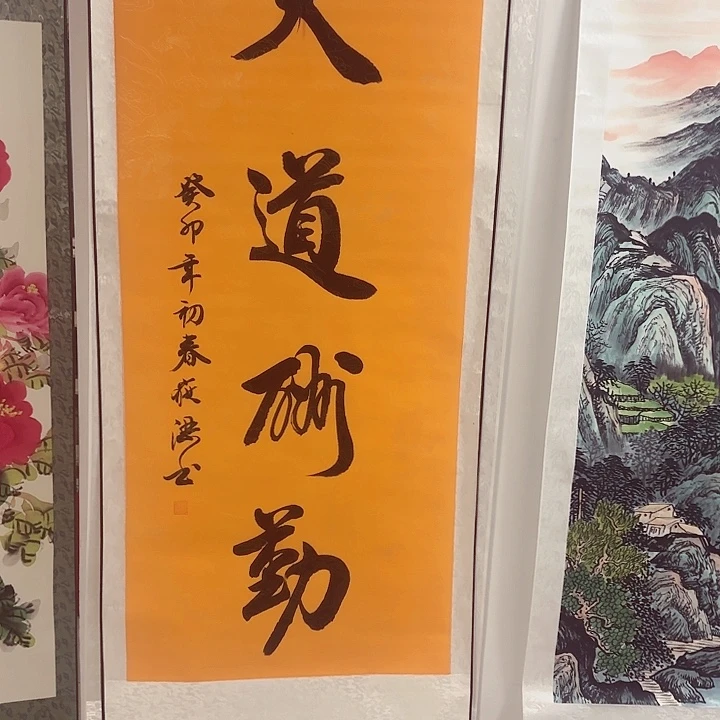 天道酬勤
癸卯年初春筱洪书